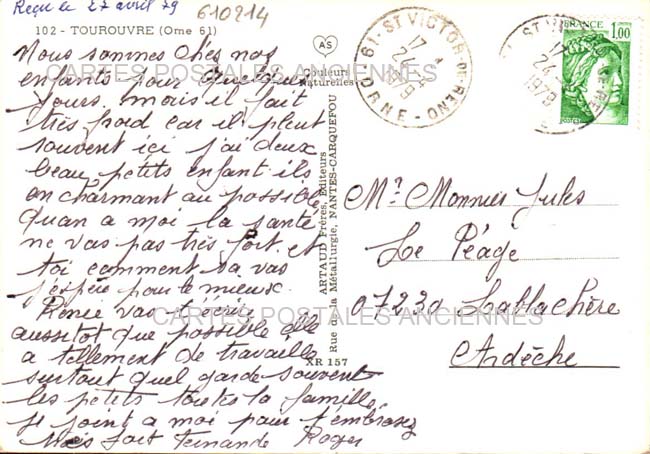 Reçu le 27 avril 79
610214
102 - TOUROUVRE (Orne 61)
Nous sommes chés nos
enfants pour quelque
Jours. mais il fait
très froid car il pleut
souvent ici j'ai deux
beau petits enfant ils
on charmant au possible
quan a moi la santé
ne vas pas très fort. et
toi comment sa vas
j'espère pour le mieux.
Renée vas t'écrire
aussitot que possible elle
a tellement de travaille
surtout quel garde souvent
les petits toutes la famille
se joint a moi pour t'embrasez
très fort Fernande Roger
AS
Couleurs
Naturelles
ARTAUD Frères, Editeurs
Rue de la Métallurgie, NANTES-CARQUEFOU
XR 157
61 - ST VICTOR DE RENO
17 H
24 - 4
1979
ORNE
FRANCE
1,00
POSTES
Mr Monnier Jules
Le Péage
07230 Lablachère
Ardèche
CARTES POSTALES ANCIENNES
CARTES POSTALES ANCIENNES